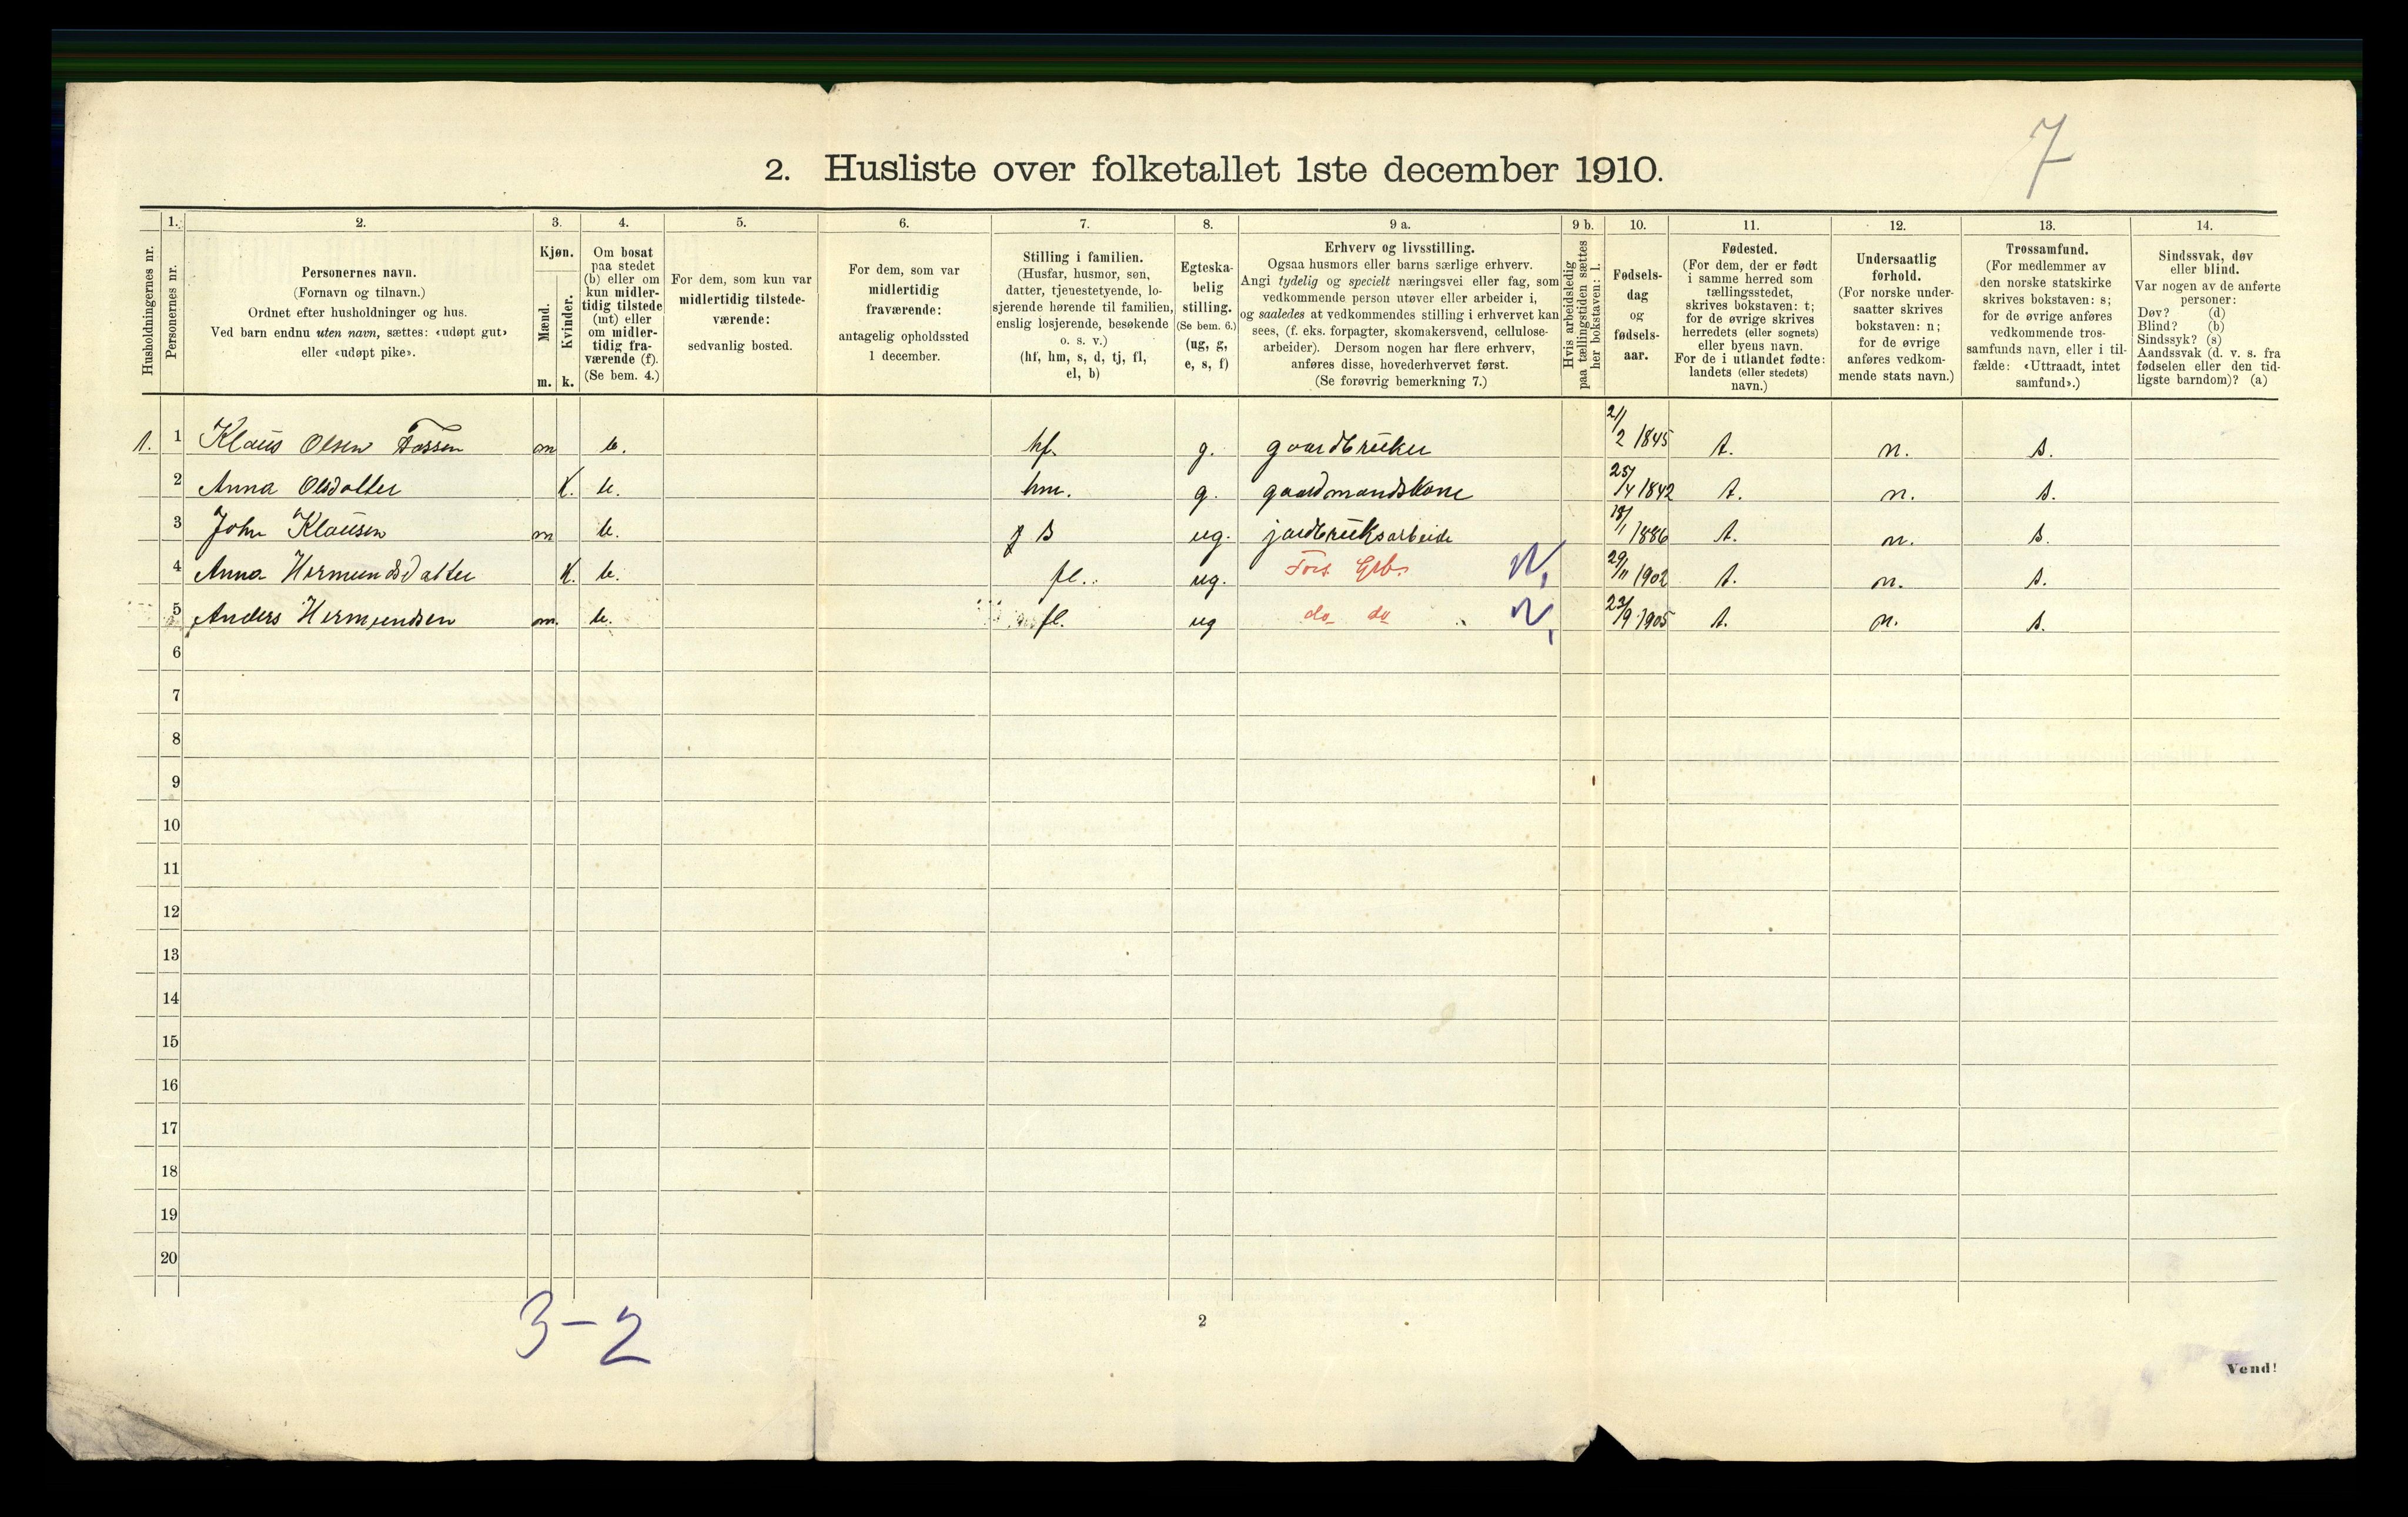 7
2. Husliste over folketallet 1ste december 1910.
Husholdningernes nr.
1.
Personernes nr.
2.
Personernes navn.
(Fornavn og tilnavn.)
Ordnet efter husholdninger og hus.
Ved barn endnu uten navn, sættes: «udøpt gut»
eller «udøpt pike».
3.
Kjøn.
Mænd.
Kvinder.
m. k.
4.
Om bosat
paa stedet
(b) eller om
kun midler-
tidig tilstede
(mt) eller
om midler-
tidig fra-
værende (f).
(Se bem. 4.)
5.
For dem, som kun var
midlertidig tilstede-
værende:
sedvanlig bosted.
6.
For dem, som var
midlertidig
fraværende:
antagelig opholdssted
1 december.
7.
Stilling i familien.
(Husfar, husmor, søn,
datter, tjenestetyende, lo-
sjerende hørende til familien,
enslig losjerende, besøkende
o. s. v.)
(hf, hm, s, d, tj, fl,
el, b)
8.
Egteska-
belig
stilling.
(Se bem. 6.)
(ug, g,
e, s, f)
9 a.
Erhverv og livsstilling.
Ogsaa husmors eller barns særlige erhverv.
Angi tydelig og specielt næringsvei eller fag, som
vedkommende person utøver eller arbeider i,
og saaledes at vedkommendes stilling i erhvervet kan
sees, (f. eks. forpagter, skomakersvend, cellulose-
arbeider). Dersom nogen har flere erhverv,
anføres disse, hovederhvervet først.
(Se forøvrig bemerkning 7.)
9 b.
Hvis arbeidsledig
paa tællingstiden sættes
her bokstaven: l.
10.
Fødsels-
dag
og
fødsels-
aar.
11.
Fødested.
(For dem, der er født
i samme herred som
tællingsstedet,
skrives bokstaven: t;
for de øvrige skrives
herredets (eller sognets)
eller byens navn.
For de i utlandet fødte:
landets (eller stedets)
navn.)
12.
Undersaatlig
forhold.
(For norske under-
saatter skrives
bokstaven: n;
for de øvrige
anføres vedkom-
mende stats navn.)
13.
Trossamfund.
(For medlemmer av
den norske statskirke
skrives bokstaven: s;
for de øvrige anføres
vedkommende tros-
samfunds navn, eller i til-
fælde: «Uttraadt, intet
samfund».)
14.
Sindssvak, døv
eller blind.
Var nogen av de anførte
personer:
Døv? (d)
Blind? (b)
Sindssyk? (s)
Aandssvak (d. v. s. fra
fødselen eller den tid-
ligste barndom)? (a)
1. 1 Klaus Olsen Fossen m b. hf. g. gaardbruker 21/2 1845 t. n. s.
2 Anna Olsdatter k. b. hm. g. gaardmandskone 25/4 1842 t. n. s.
3 John Klausen m b. s ug. jordbruksarbeide 18/1 1886 t. n. s.
4 Anna Hermundsdatter k. b. fl. ug. Fors. Grb. 29/11 1902 t. n. s.
5 Anders Hermundsen m. b. fl. ug do do 23/9 1905 t. n. s.
6
7
8
9
10
11
12
13
14
15
16
17
18
19
20
3-2
2
Vend!